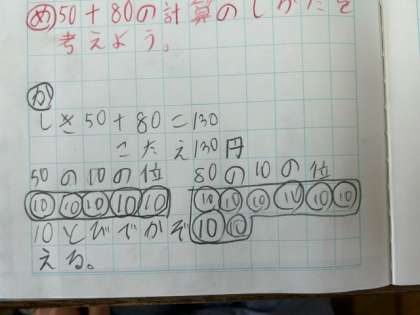 め 50+80の計算のしかたを
考えよう。
か
しき50+80=130
こたえ130円
50の10の位 80の10の位
10 10 10 10 10 10 10 10 10 10 10
10とびでかぞ 10 10
える。